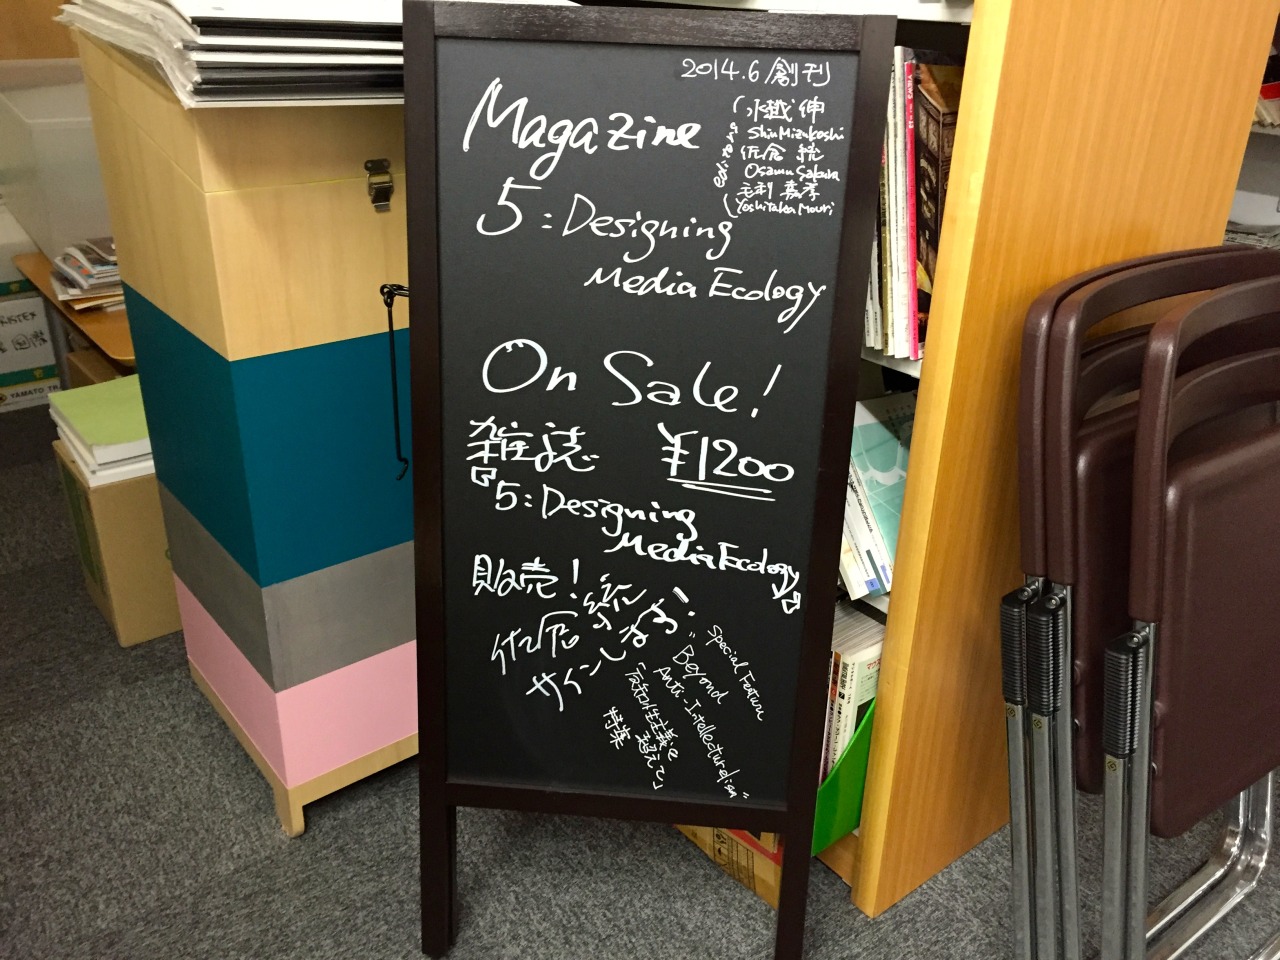 2014.6 創刊
Magazine
editors
水越 伸
Shin Mizukoshi
佐倉 統
Osamu Sakura
毛利 嘉孝
Yoshitaka Mouri
5: Designing
Media Ecology
On Sale!
雑誌 ¥1200
『5: Designing
Media Ecology』
販売!
佐倉 統
サインします!
Special Feature
"Beyond
Anti-Intellecturalism"
「反知性主義を
超えて」
特集
YAMATO TR